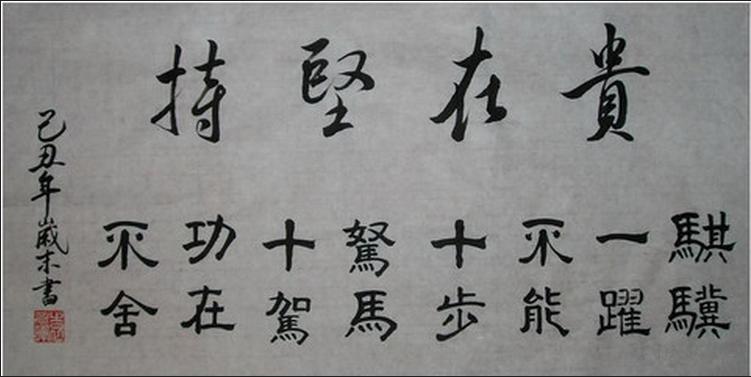 貴在堅持
騏驥
一躍
不能
十步
駑馬
十駕
功在
不舍
己丑年歲末書